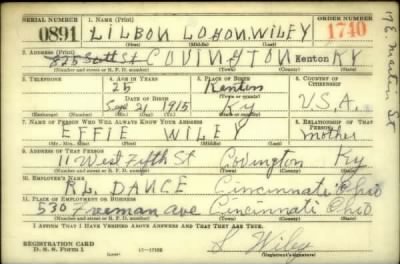 SERIAL NUMBER 1. NAME (Print) ORDER NUMBER
0891 LILBON LOHON. WILEY 1740
(First) (Middle) (Last)
2. ADDRESS (Print)
825 Scott St COVINGTON Kenton KY
(Number and street or R. F. D. number) (Town) (County) (State)
17 E. Martin St
3. TELEPHONE 4. AGE IN YEARS 5. PLACE OF BIRTH 6. COUNTRY OF CITIZENSHIP
25 Kenton
DATE OF BIRTH
Sept 21 1915 Ky U.S.A.
7. NAME OF PERSON WHO WILL ALWAYS KNOW YOUR ADDRESS 8. RELATIONSHIP OF THAT PERSON
EFFIE WILEY mother
(Mr., Mrs., Miss) (First) (Middle) (Last)
9. ADDRESS OF THAT PERSON
11 West Fifth St Covington Ky
(Number and street or R. F. D. number) (Town) (County) (State)
10. EMPLOYER'S NAME
R.L. DANCE Cincinnati Ohio
11. PLACE OF EMPLOYMENT OR BUSINESS
530 Freeman ave Cincinnati Ohio
(Number and street or R. F. D. number) (Town) (County) (State)
I AFFIRM THAT I HAVE VERIFIED ABOVE ANSWERS AND THAT THEY ARE TRUE.
REGISTRATION CARD
D. S. S. Form 1 L Wiley
(Registrant's signature)